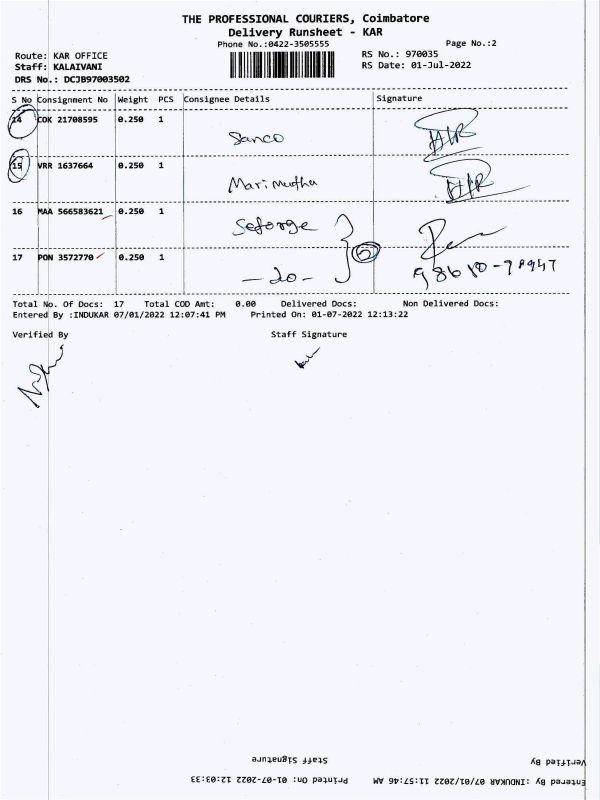 THE PROFESSIONAL COURIERS, Coimbatore
Delivery Runsheet - KAR
Phone No.:0422-3505555
Page No.:2
Route: KAR OFFICE
RS No.: 970035
Staff: KALAIVANI
RS Date: 01-Jul-2022
DRS No.: DCJB97003502
S No Consignment No Weight PCS Consignee Details Signature
14 COK 21708595 0.250 1
Sanco
15 VRR 1637664 0.250 1
Marimutha
16 MAA 566583621 0.250 1
Seforge
17 PON 3572770 0.250 1
2
Total No. Of Docs: 17 Total COD Amt: 0.00 Delivered Docs: Non Delivered Docs:
Entered By :INDUKAR 07/01/2022 12:07:41 PM Printed On: 01-07-2022 12:13:22
Verified By Staff Signature
Verified By Staff Signature
Entered By :INDUKAR 07/01/2022 11:57:46 AM Printed On: 01-07-2022 12:03:33